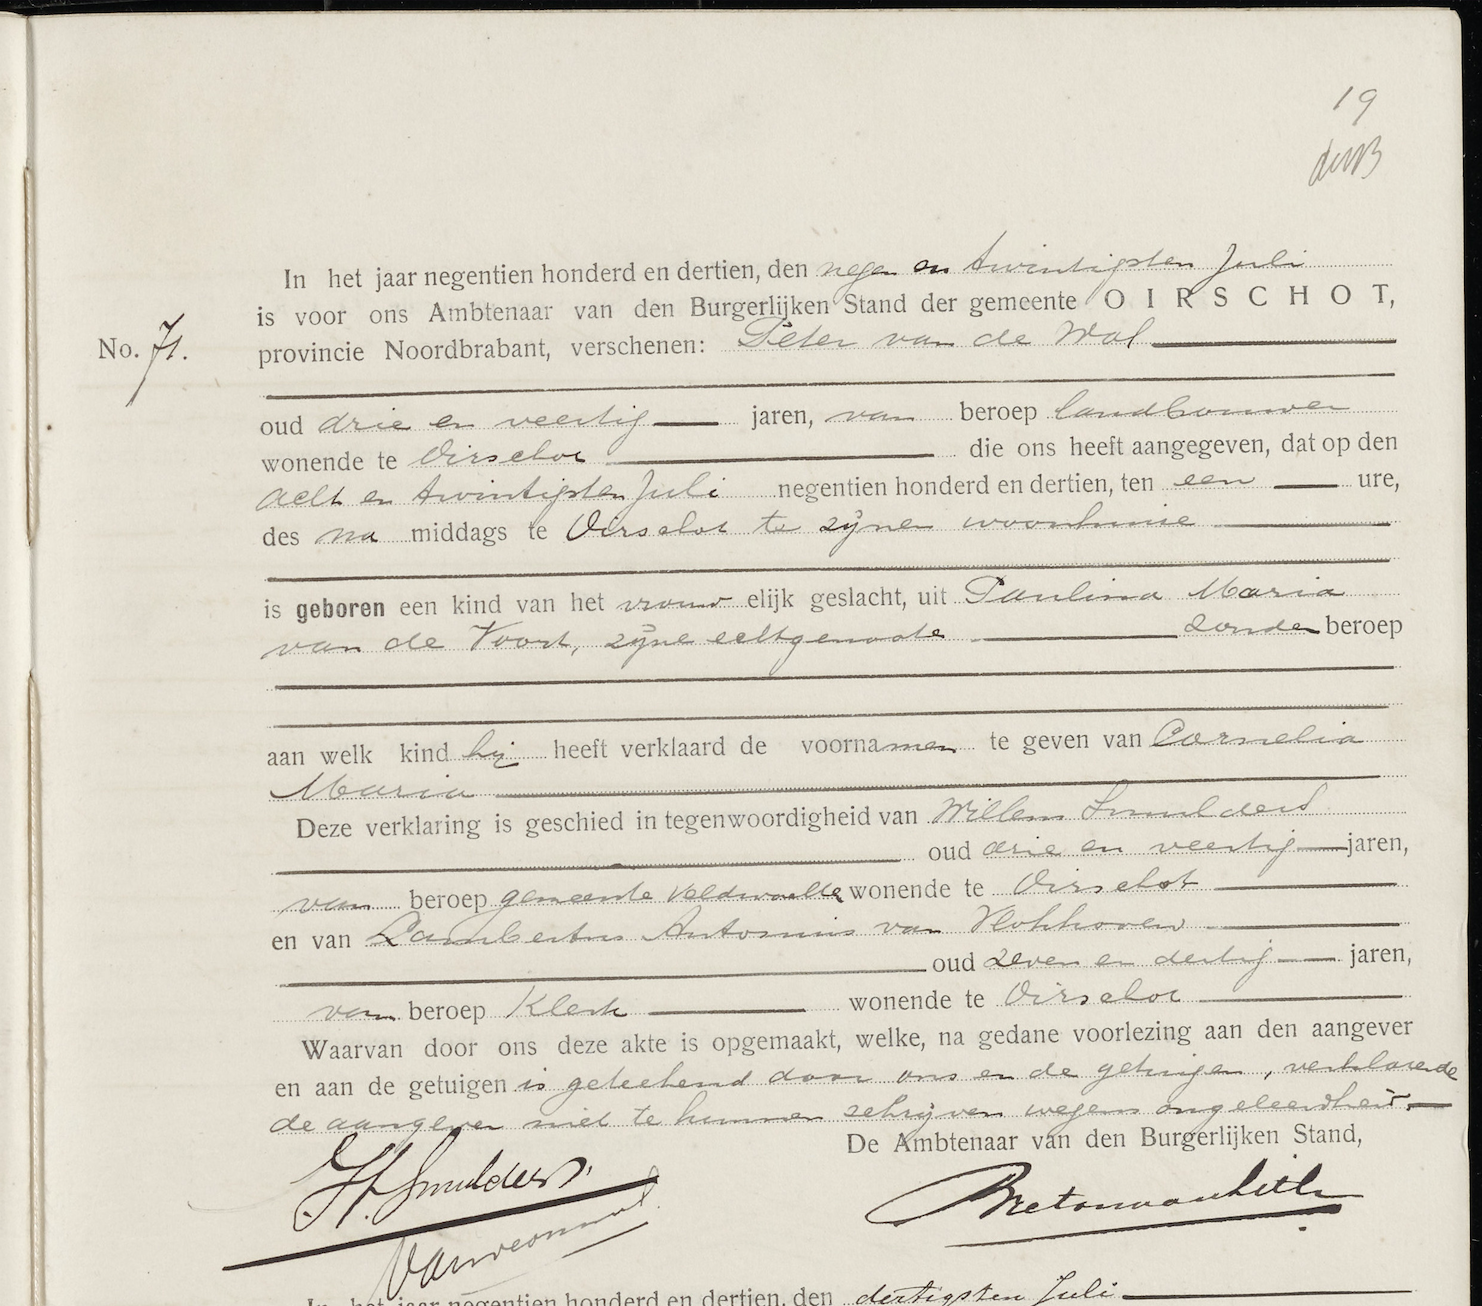 19
In het jaar negentien honderd en dertien, den negen en twintigsten Juli
is voor ons Ambtenaar van den Burgerlijken Stand der gemeente OIRSCHOT,
No. 71.
provincie Noordbrabant, verschenen: Peter van de Wal
oud drie en veertig jaren, van beroep landbouwer
wonende te Oirschot die ons heeft aangegeven, dat op den
acht en twintigsten Juli negentien honderd en dertien, ten een ure,
des na middags te Oirschot te zijnen woonhuize
is geboren een kind van het vrouwelijk geslacht, uit Paulina Maria
van de Voort, zijne echtgenoote zonder beroep
aan welk kind hij heeft verklaard de voornamen te geven van Cornelia
Maria
Deze verklaring is geschied in tegenwoordigheid van Willem Smulders
oud drie en veertig jaren,
van beroep gemeente veldwachter wonende te Oirschot
en van Lambertus Antonius van
oud zeven en dertig jaren,
van beroep Klerk wonende te Oirschot
Waarvan door ons deze akte is opgemaakt, welke, na gedane voorlezing aan den aangever
en aan de getuigen is geteekend door ons en de getuigen, verklarende
de aangever niet te kunnen schrijven wegens ongeleerdheid.
De Ambtenaar van den Burgerlijken Stand,
Smulders
In het jaar negentien honderd en dertien, den dertigsten Juli